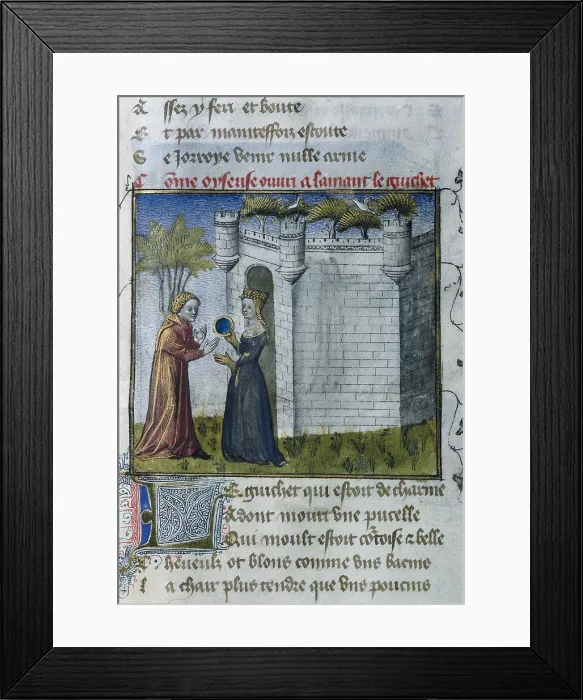 A ssez y feri et boute
E t par maintesfois escoute
S e Jorroye venir nulle arme
C ōme oyseuse ouvri a lamant le guichet
L E guichet qui estoit de charme
A dont mourt vne pucelle
Qui moult estoit cōtoise & belle
C heueulx ot blons comme vns bacins
L a chair plus tendre que vns poucins